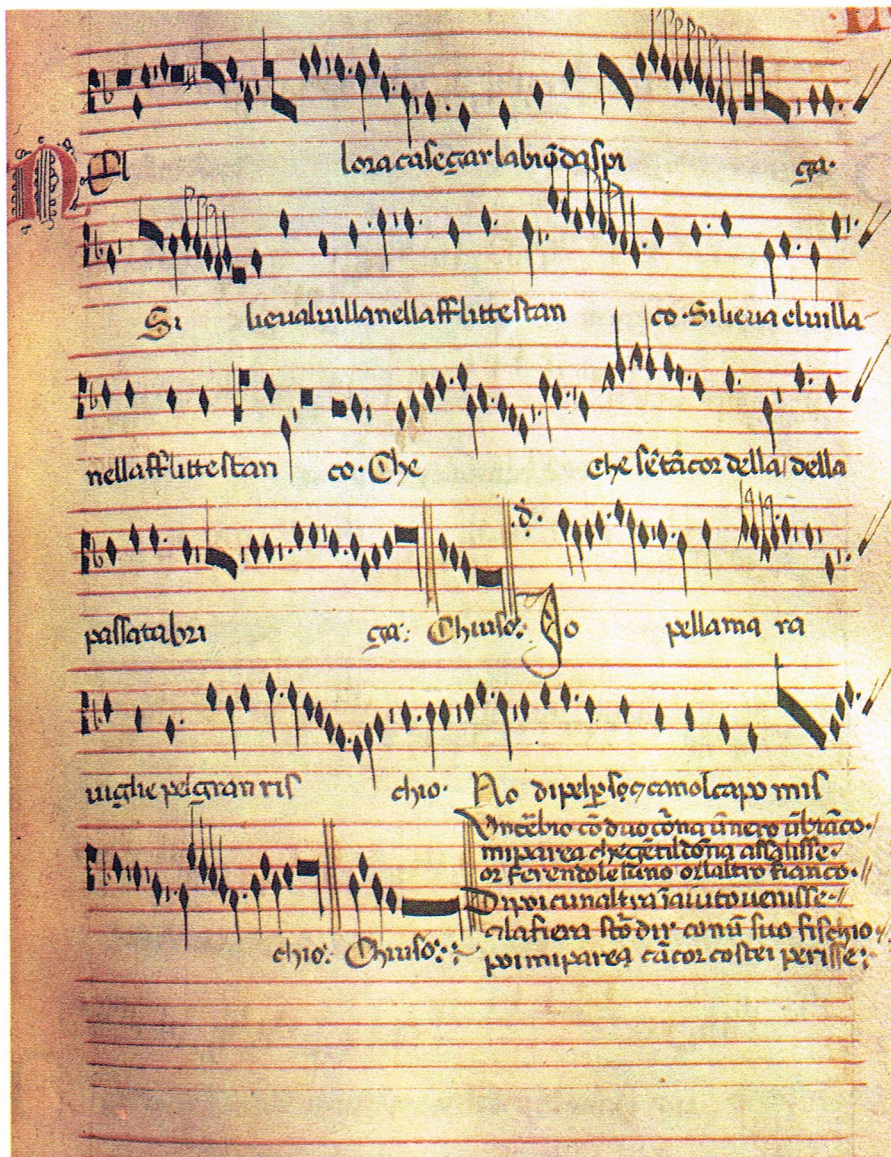 Nel lora casegar labiōda spi ga·
Si lieua luilla nell afflitte stan co· Si lieua el uilla
nell afflitte stan co· Che Che sētācor della della
passata bri ga: Chiuso: Io pella ma ra
uiglie pel gran ris chio· No di pel capo mis
chio: Chiuso:
Un cēbio cō duo cōna ū nero ū biāco·
mi parea che gētil dōna assalisse·
or ferendole luno or laltro fianco·
Di poi cunaltra aiuto uenisse·
la fiera stō dir con ū suo fischio
poi mi parea cācor costei perisse: